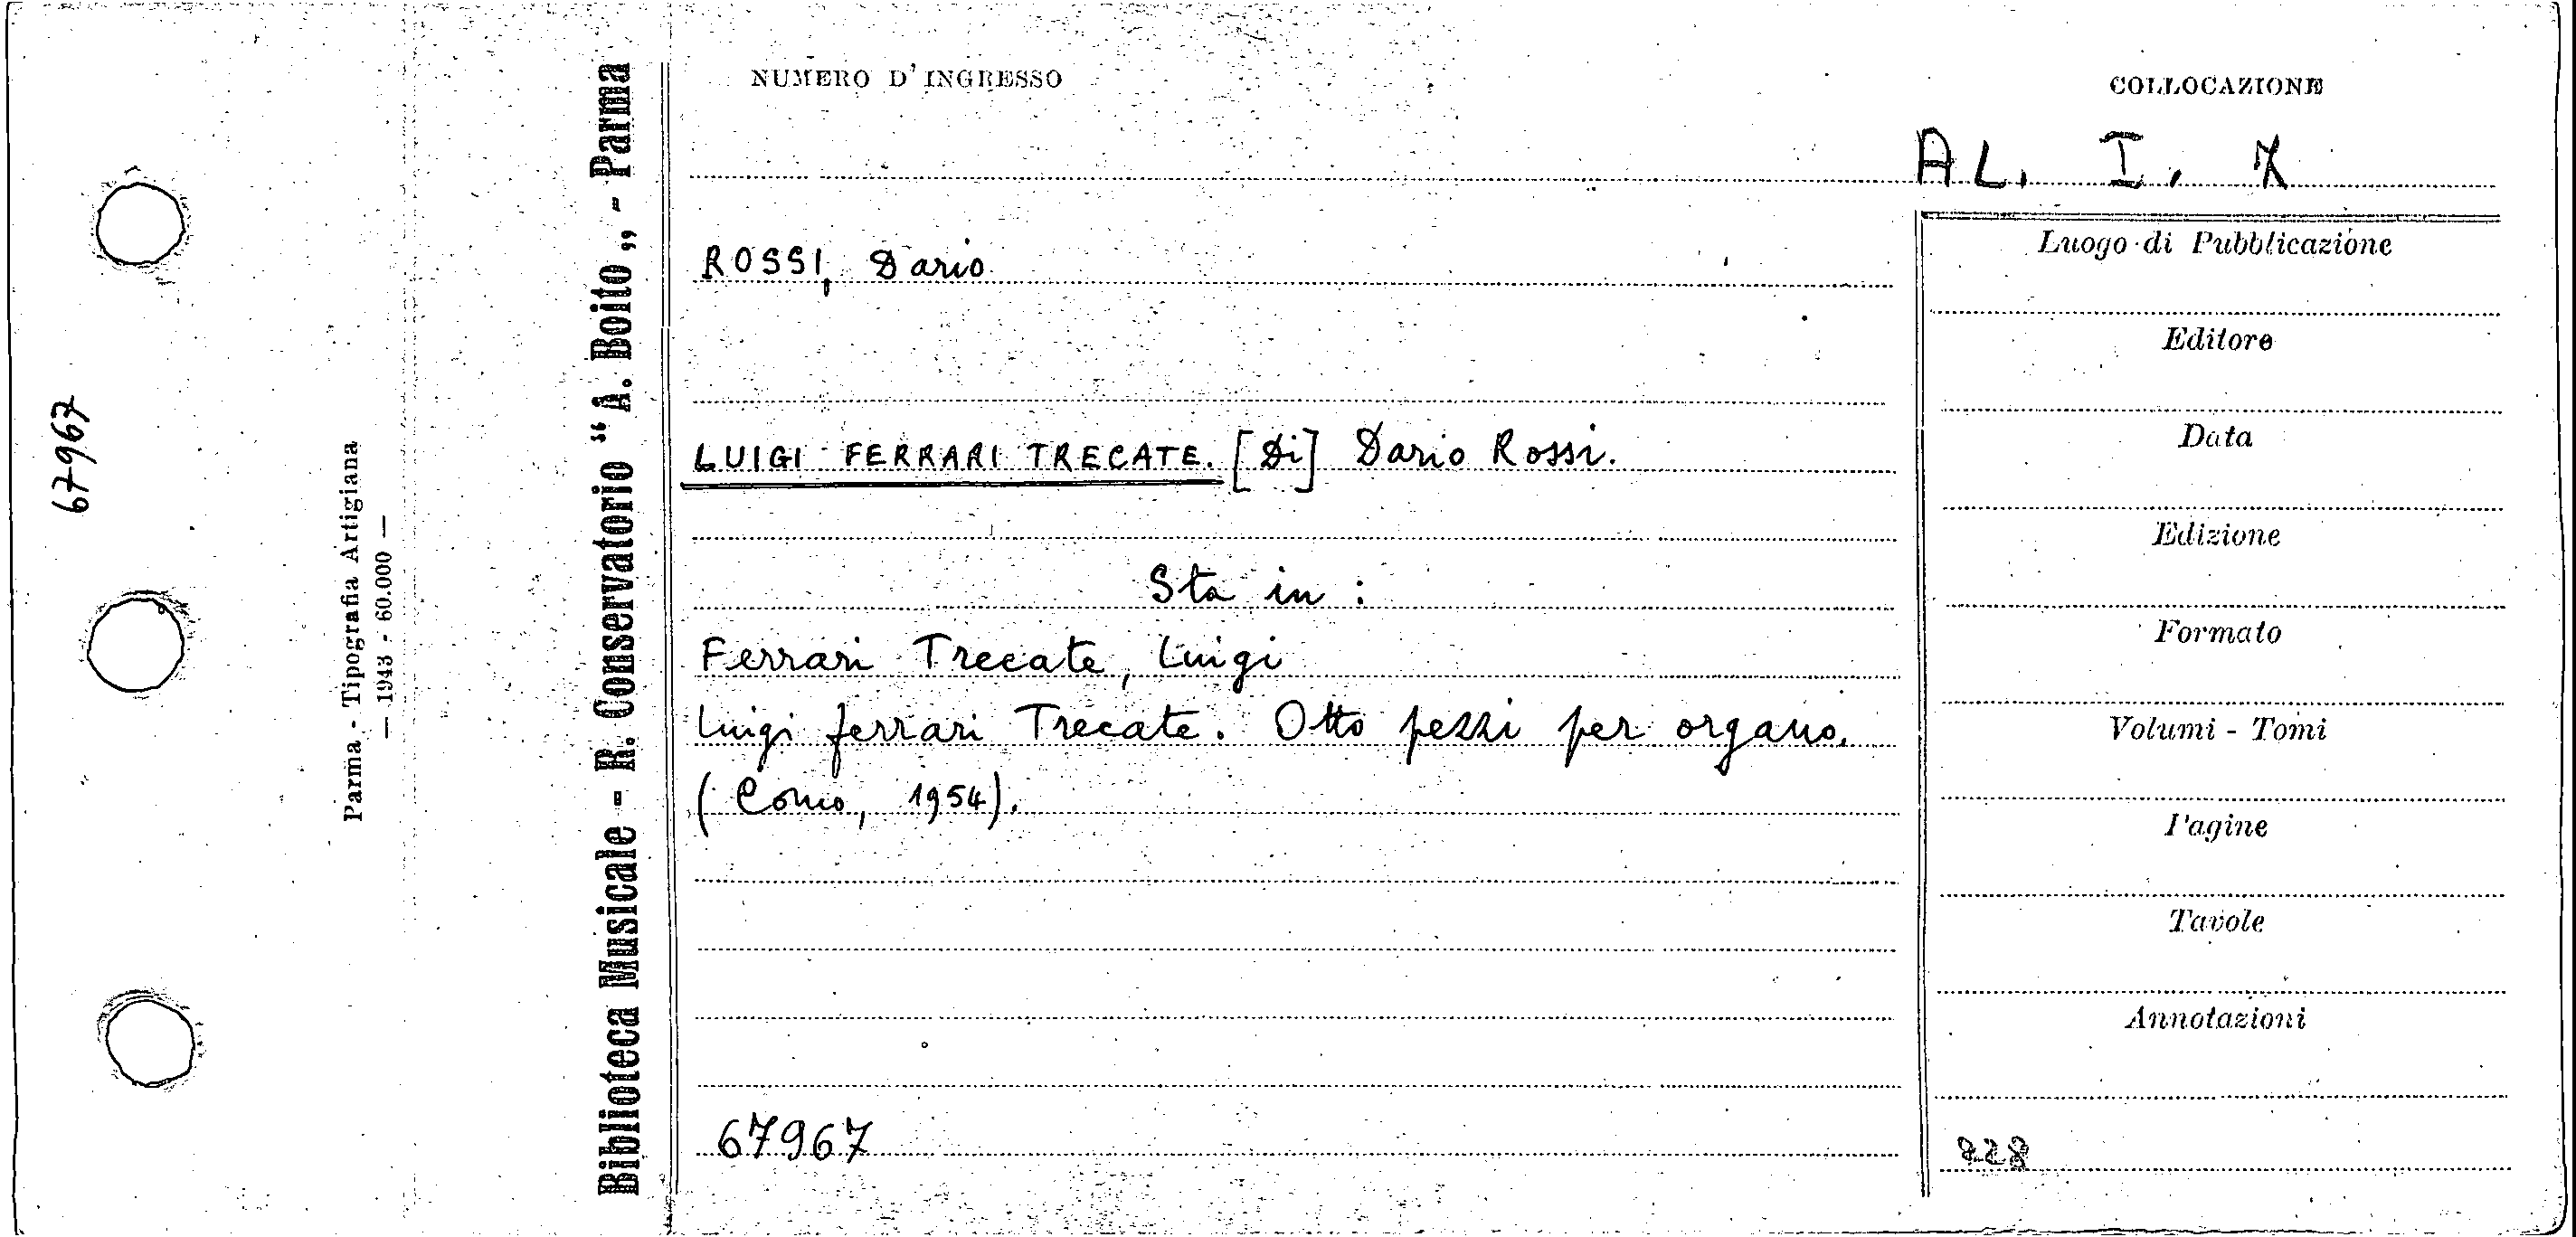 67967
Parma - Tipografia Artigiana
— 1943 - 60.000 —
Biblioteca Musicale - R. Conservatorio “A. Boito„ - Parma
NUMERO D'INGRESSO
COLLOCAZIONE
AL. I. 7
ROSSI, Dario
LUIGI FERRARI TRECATE. [Di] Dario Rossi.
Sta in :
Ferrari Trecate, Luigi
Luigi Ferrari Trecate. Otto pezzi per organo.
(Como, 1954).
67967
Luogo di Pubblicazione
Editore
Data
Edizione
Formato
Volumi - Tomi
Pagine
Tavole
Annotazioni